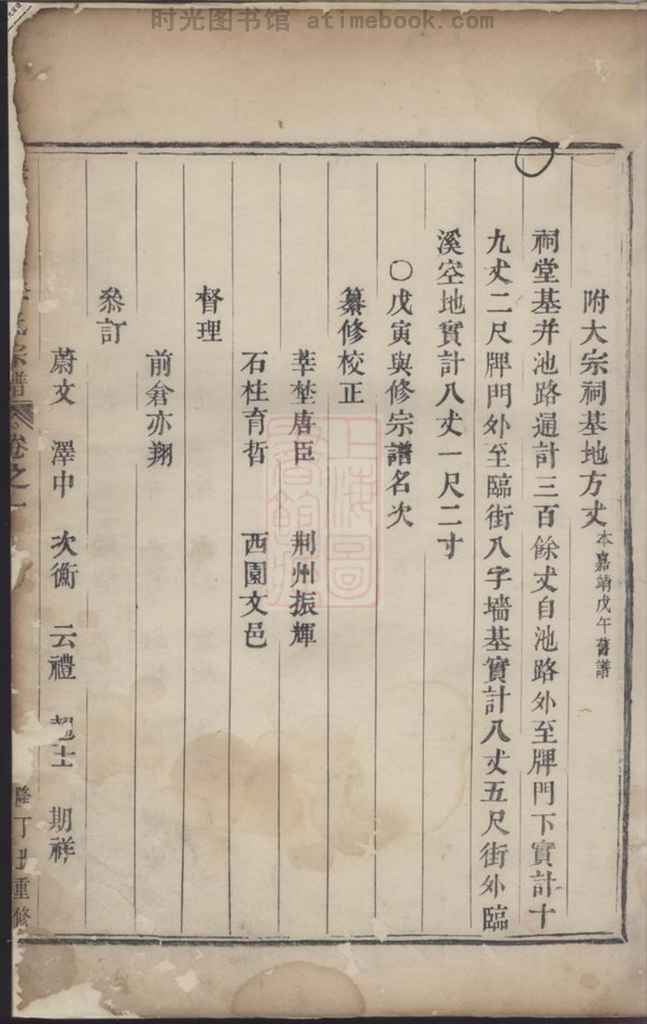 时光图书馆 atimebook.com
附大宗祠基地方丈 本嘉靖戊午舊譜
祠堂基并池路通計三百餘丈自池路外至牌門下實計十
九丈二尺牌門外至臨街八字墻基實計八丈五尺街外臨
溪空地實計八丈一尺二寸
○戊寅與修宗譜名次
纂修校正
莘埜唐臣 荆州振輝
石柱育哲 西園文邑
督理
前倉亦翔
叅訂
蔚文 澤中 次衡 云禮 士 期祥
氏宗譜 卷之一 隆丁丑重修
上海圖書館藏